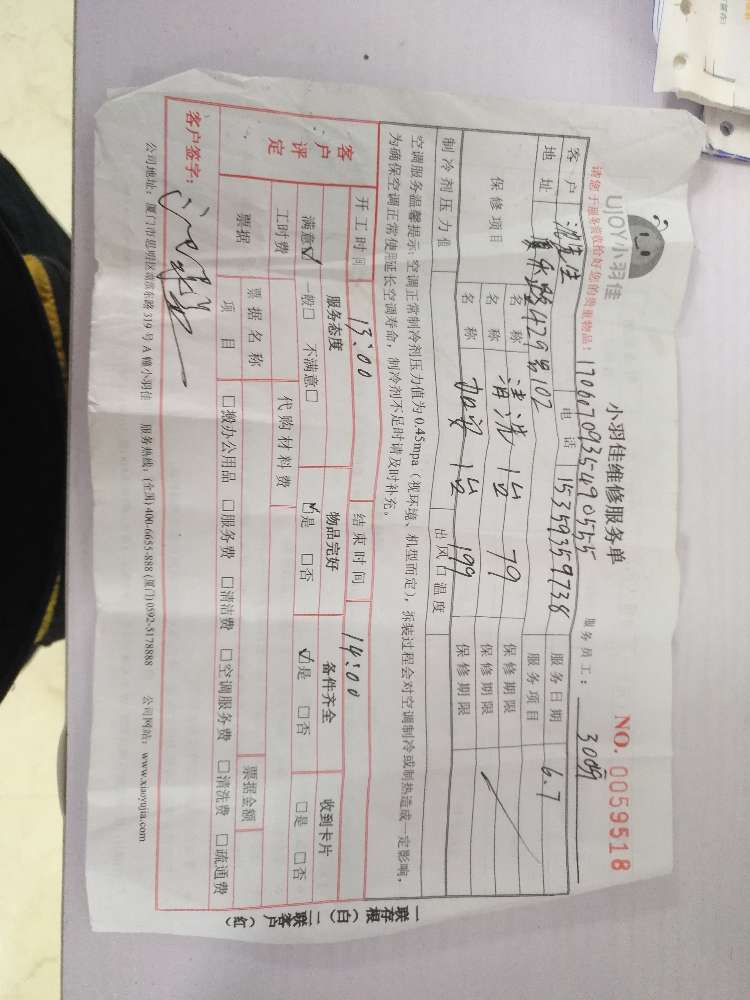 UJOY小羽佳
小羽佳维修服务单
NO. 0059518
请您于服务前收拾好您的贵重物品!
17060709354905555
服务员工:
客户
先生
电话
15359359738
服务日期
6.7
地址
429号102
服务项目
保修项目
名称
清洗1台
79
保修期限
名称
加氟1台
199
保修期限
制冷剂压力值
出风口温度
空调服务温馨提示:空调正常制冷剂压力值为0.45mpa(视环境、机型而定),拆装过程会对空调制冷或制热造成一定影响,
为确保空调正常使用延长空调寿命,制冷剂不足时请及时补充。
开工时间
13:00
结束时间
14:00
客户评定
服务态度
物品完好
备件齐全
收到卡片
满意☑ 一般□ 不满意□
☑是 □否
☑是 □否
□是 □否
工时费
代购材料费
票据
票据名称
票据金额
项目
□搬办公用品 □服务费 □清洁费 □空调服务费 □清洗费 □疏通费
客户签字:
公司地址:厦门市思明区 东路319号A幢小羽佳 服务热线:(全国)400-6655-888 (厦门)0592-5178888 公司网站:www.xiaoyujia.com
一联存根(白) 二联客户(红)